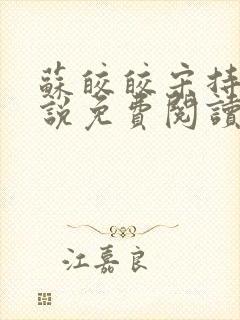 蘇皎皎宋持
說免費閱讀
江嘉良